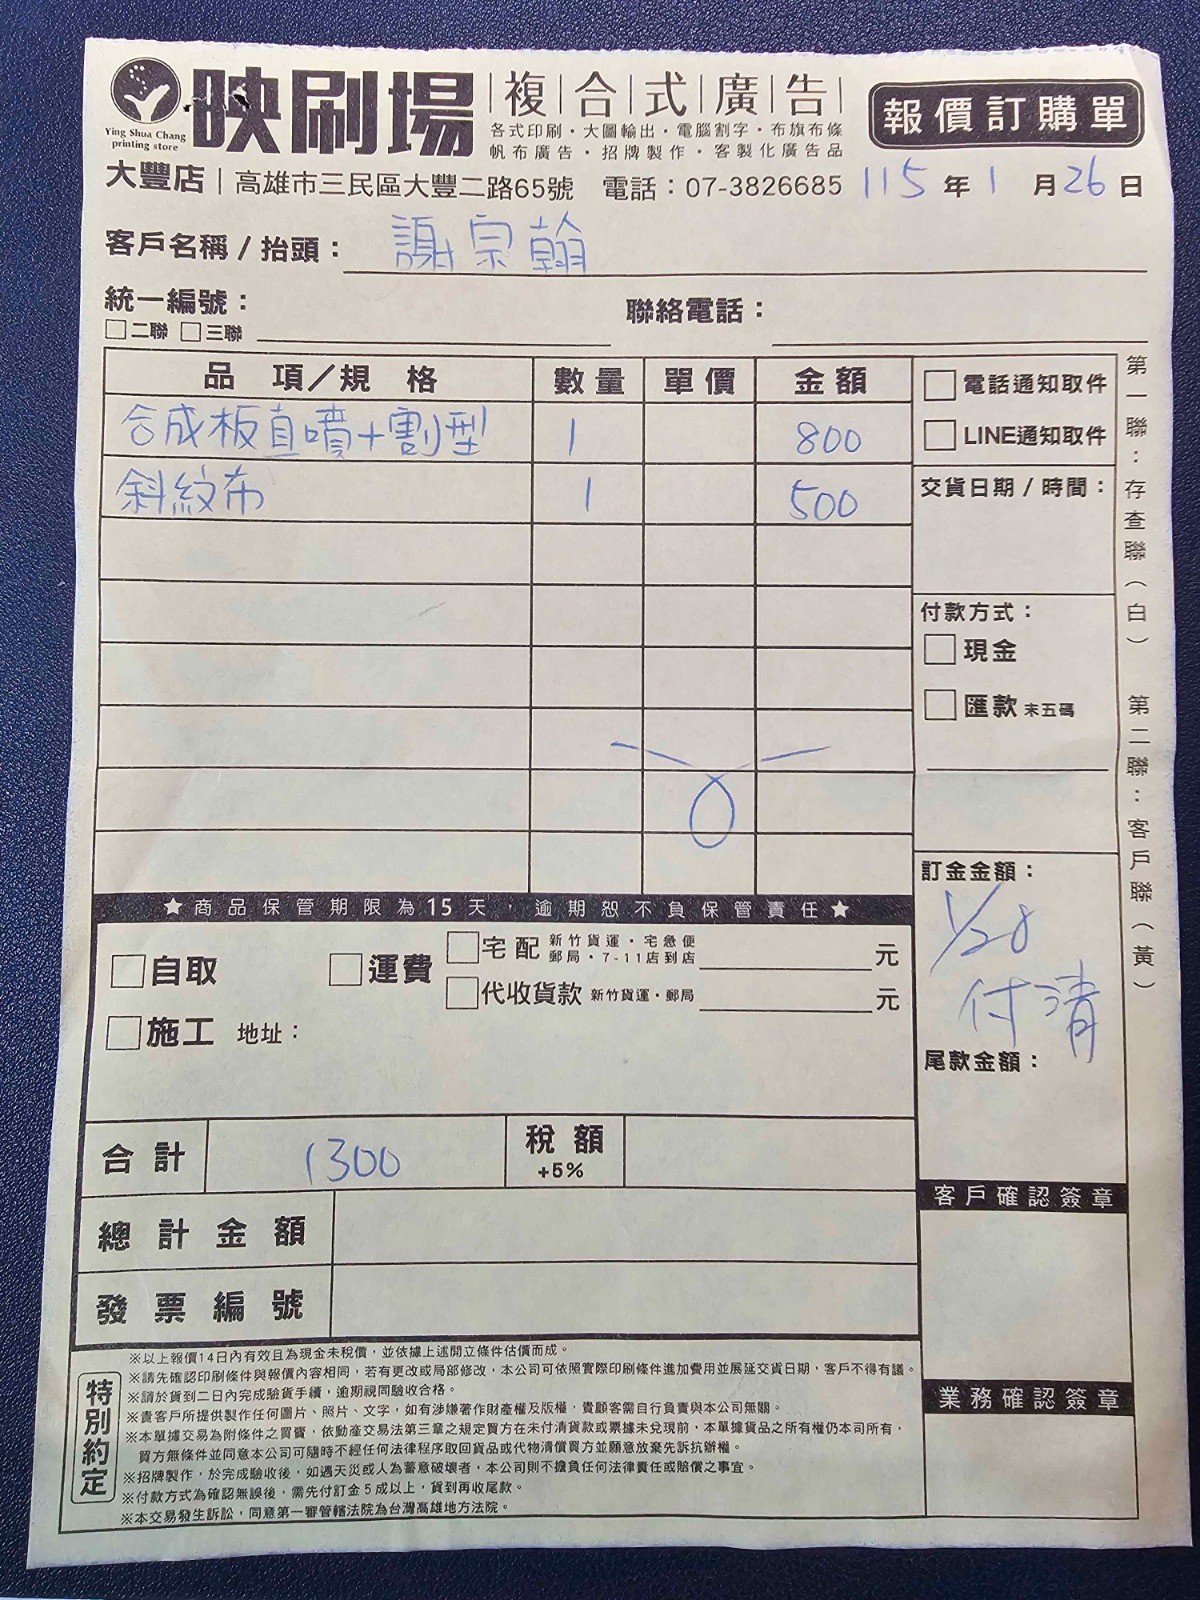 Ying Shua Chang
printing store
映刷場
複合式廣告
各式印刷・大圖輸出・電腦割字・布旗布條
帆布廣告・招牌製作・客製化廣告品
報價訂購單
大豐店|高雄市三民區大豐二路65號 電話：07-3826685
115年1月26日
客戶名稱/抬頭：謝宗翰
統一編號：
□二聯 □三聯
聯絡電話：
品項/規格 數量 單價 金額
合成板直噴+割型 1 800
斜紋布 1 500
□電話通知取件
□LINE通知取件
交貨日期/時間：
付款方式：
□現金
□匯款 末五碼
訂金金額：
1/28
付清
尾款金額：
第一聯：存查聯(白) 第二聯：客戶聯(黃)
★商品保管期限為15天，逾期恕不負保管責任★
□自取 □運費
□宅配 新竹貨運・宅急便
郵局・7-11店到店 元
□代收貨款 新竹貨運・郵局 元
□施工 地址：
合計 1300 稅額
+5%
總計金額
發票編號
客戶確認簽章
業務確認簽章
特別約定
※以上報價14日內有效且為現金未稅價，並依據上述開立條件估價而成。
※請先確認印刷條件與報價內容相同，若有更改或局部修改，本公司可依照實際印刷條件進加費用並展延交貨日期，客戶不得有議。
※請於貨到二日內完成驗貨手續，逾期視同驗收合格。
※貴客戶所提供製作任何圖片、照片、文字，如有涉嫌著作財產權及版權，貴顧客需自行負責與本公司無關。
※本單據交易為附條件之買賣，依動產交易法第三章之規定買方在未付清貨款或票據未兌現前，本單據貨品之所有權仍本司所有，
買方無條件並同意本公司可隨時不經任何法律程序取回貨品或代物清償買方並願意放棄先訴抗辯權。
※招牌製作，於完成驗收後，如遇天災或人為蓄意破壞者，本公司則不擔負任何法律責任或賠償之事宜。
※付款方式為確認無誤後，需先付訂金5成以上，貨到再收尾款。
※本交易發生訴訟，同意第一審管轄法院為台灣高雄地方法院。